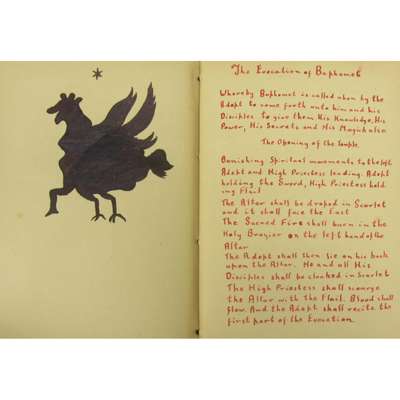 The Evocation of Baphomet
Whereby Baphomet is called upon by the
Adept to come forth unto him and his
Disciples to give them His Knowledge, His
Power, His Secrets and His Magickalie
The Opening of the Temple.
Banishing Spiritual movements to the left
Adept and High Priestess leading. Adept
holding the Sword, High Priestess hold
ing Flail
The Altar shall be draped in Scarlet
and it shall face the East
The Sacred Fire shall burn in the
Holy Brazier on the left hand of the
Altar
The Adept shall then lie on his back
upon the Altar. He and all His
Disciples shall be cloaked in Scarlet
The High Priestess shall scourge
the Altar with the Flail. Blood shall
flow. And the Adept shall recite the
first part of the Evocation.